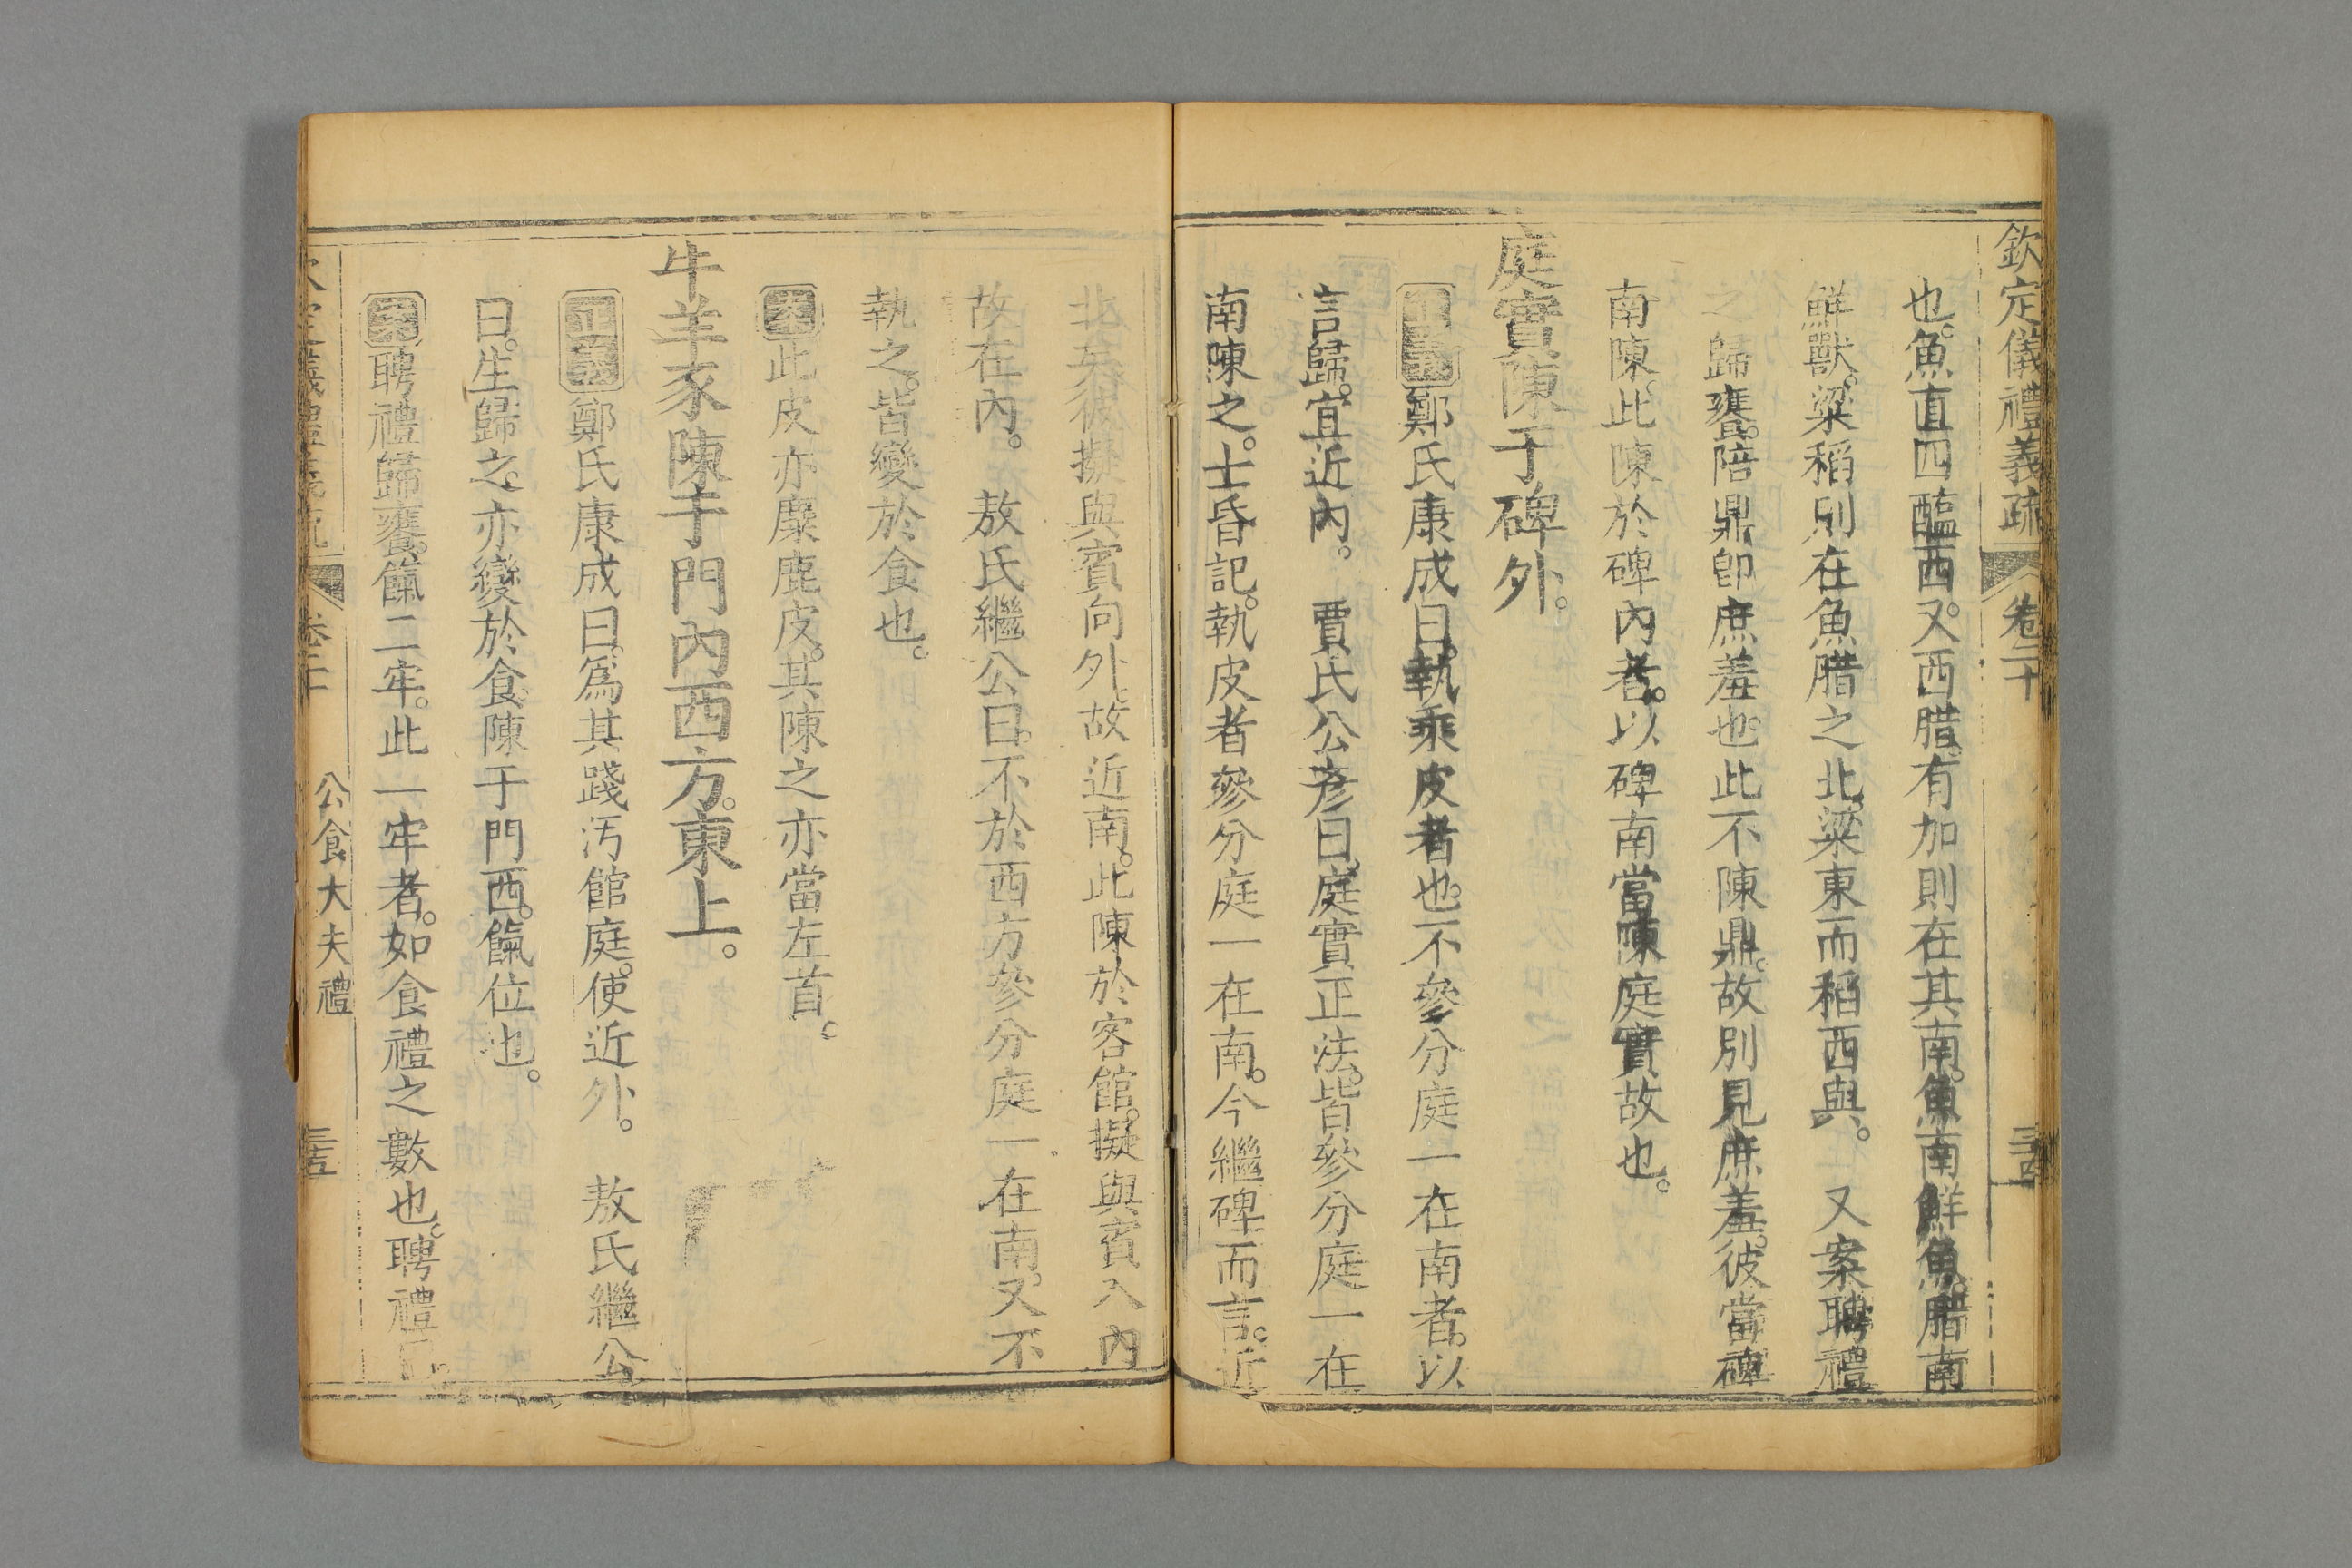 欽定儀禮義疏 卷二十
也。魚直四醢西。又西腊。有加則在其南。魚南鮮魚。腊南
鮮獸。粱稻則在魚腊之北。粱東而稻西與。 又案聘禮
之歸饔。陪鼎卽庶羞也。此不陳鼎。故別見庶羞。彼當碑
南陳。此陳於碑內者。以碑南當陳庭實故也。
庭實陳于碑外。
正義鄭氏康成曰。執乘皮者也。不參分庭一在南者。以
言歸。宜近內。 賈氏公彥曰。庭實正法。皆參分庭一在
南陳之。士昏記。執皮者參分庭一在南。今繼碑而言。近
北矣。彼擬與賓向外。故近南。此陳於客館。擬與賓入內
故在內。 敖氏繼公曰。不於西方參分庭一在南。又不
執之。皆變於食也。
案此皮亦麋鹿皮。其陳之亦當左首。
牛羊豕陳于門內西方。東上。
正義鄭氏康成曰。爲其踐汚館庭。使近外。 敖氏繼公
曰。生歸之。亦變於食。陳于門西。餼位也。
案聘禮歸饔。餼二牢。此一牢者。如食禮之數也。聘禮
公食大夫禮